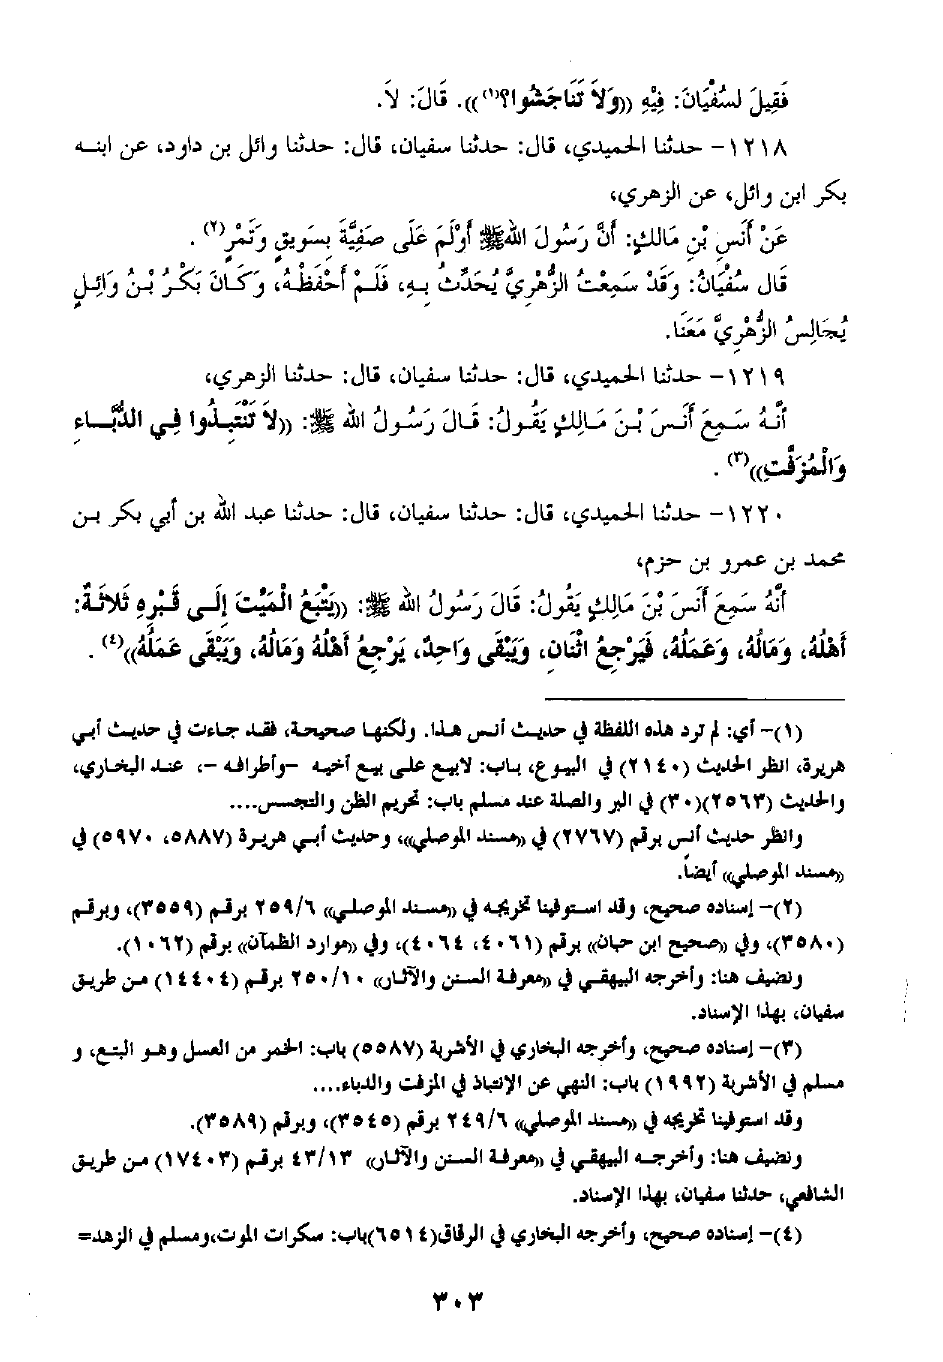 فَقِيلَ لسُفْيَانَ: فِيْهِ ((وَلاَ تَنَاجَشُوا؟(١))). قَالَ: لاَ.
١٢١٨- حدثنا الحميدي، قال: حدثنا سفيان، قال: حدثنا وائل بن داود، عن ابنه
بكر ابن وائل، عن الزهري،
عَنْ أَنَسِ بْنِ مَالِكٍ: أَنَّ رَسُولَ اللهِ ﷺ أَوْلَمَ عَلَى صَفِيَّةَ بِسَوِيقٍ وَتَمْرٍ(٢).
قَال سُفْيَانُ: وَقَدْ سَمِعْتُ الزُّهْرِيَّ يُحَدِّثُ بِهِ، فَلَمْ أَحْفَظْهُ، وَكَانَ بَكْرُ بْنُ وَائِلٍ
يُجَالِسُ الزُّهْرِيَّ مَعَنَا.
١٢١٩- حدثنا الحميدي، قال: حدثنا سفيان، قال: حدثنا الزهري،
أَنَّهُ سَمِعَ أَنَسَ بْنَ مَالِكٍ يَقُولُ: قَالَ رَسُولُ اللهِ ﷺ: ((لاَ تَنْتَبِذُوا فِي الدُّبَّاءِ
وَالْمُزَفَّتِ))(٣).
١٢٢٠- حدثنا الحميدي، قال: حدثنا سفيان، قال: حدثنا عبد الله بن أبي بكر بن
محمد بن عمرو بن حزم،
أَنَّهُ سَمِعَ أَنَسَ بْنَ مَالِكٍ يَقُولُ: قَالَ رَسُولُ اللهِ ﷺ: ((يَتْبَعُ الْمَيْتَ إِلَى قَبْرِهِ ثَلاثَةٌ:
أَهْلُهُ، وَمَالُهُ، وَعَمَلُهُ، فَيَرْجِعُ اثْنَانِ، وَيَبْقَى وَاحِدٌ، يَرْجِعُ أَهْلُهُ وَمَالُهُ، وَيَبْقَى عَمَلُهُ))(٤).
(١)- أي: لم ترد هذه اللفظة في حديث أنس هذا. ولكنها صحيحة، فقد جاءت في حديث أبي
هريرة، انظر الحديث (٢١٤٠) في البيوع، باب: لايبيع على بيع أخيه -وأطرافه -، عند البخاري،
والحديث (٢٥٦٣)(٣٠) في البر والصلة عند مسلم باب: تحريم الظن والتجسس....
وانظر حديث أنس برقم (٢٧٦٧) في «مسند الموصلي»، وحديث أبي هريرة (٥٨٨٧، ٥٩٧٠) في
«مسند الموصلي» أيضاً.
(٢)- إسناده صحيح، وقد استوفينا تخريجه في «مسند الموصلي» ٢٥٩/٦ برقم (٣٥٥٩)، وبرقم
(٣٥٨٠)، وفي «صحيح ابن حبان» برقم (٤٠٦١، ٤٠٦٤)، وفي «موارد الظمآن» برقم (١٠٦٢).
ونضيف هنا: وأخرجه البيهقي في «معرفة السنن والآثار» ٢٥٠/١٠ برقم (١٤٤٠٤) من طريق
سفيان، بهذا الإسناد.
(٣)- إسناده صحيح، وأخرجه البخاري في الأشربة (٥٥٨٧) باب: الخمر من العسل وهو البتع، و
مسلم في الأشربة (١٩٩٢) باب: النهي عن الإنتباذ في المزفت والدباء....
وقد استوفينا تخريجه في «مسند الموصلي» ٢٤٩/٦ برقم (٣٥٤٥)، وبرقم (٣٥٨٩).
ونضيف هنا: وأخرجه البيهقي في «معرفة السنن والآثار» ٤٣/١٣ برقم (١٧٤٠٣) من طريق
الشافعي، حدثنا سفيان، بهذا الإسناد.
(٤)- إسناده صحيح، وأخرجه البخاري في الرقاق(٦٥١٤)باب: سكرات الموت،ومسلم في الزهد=
٣٠٣